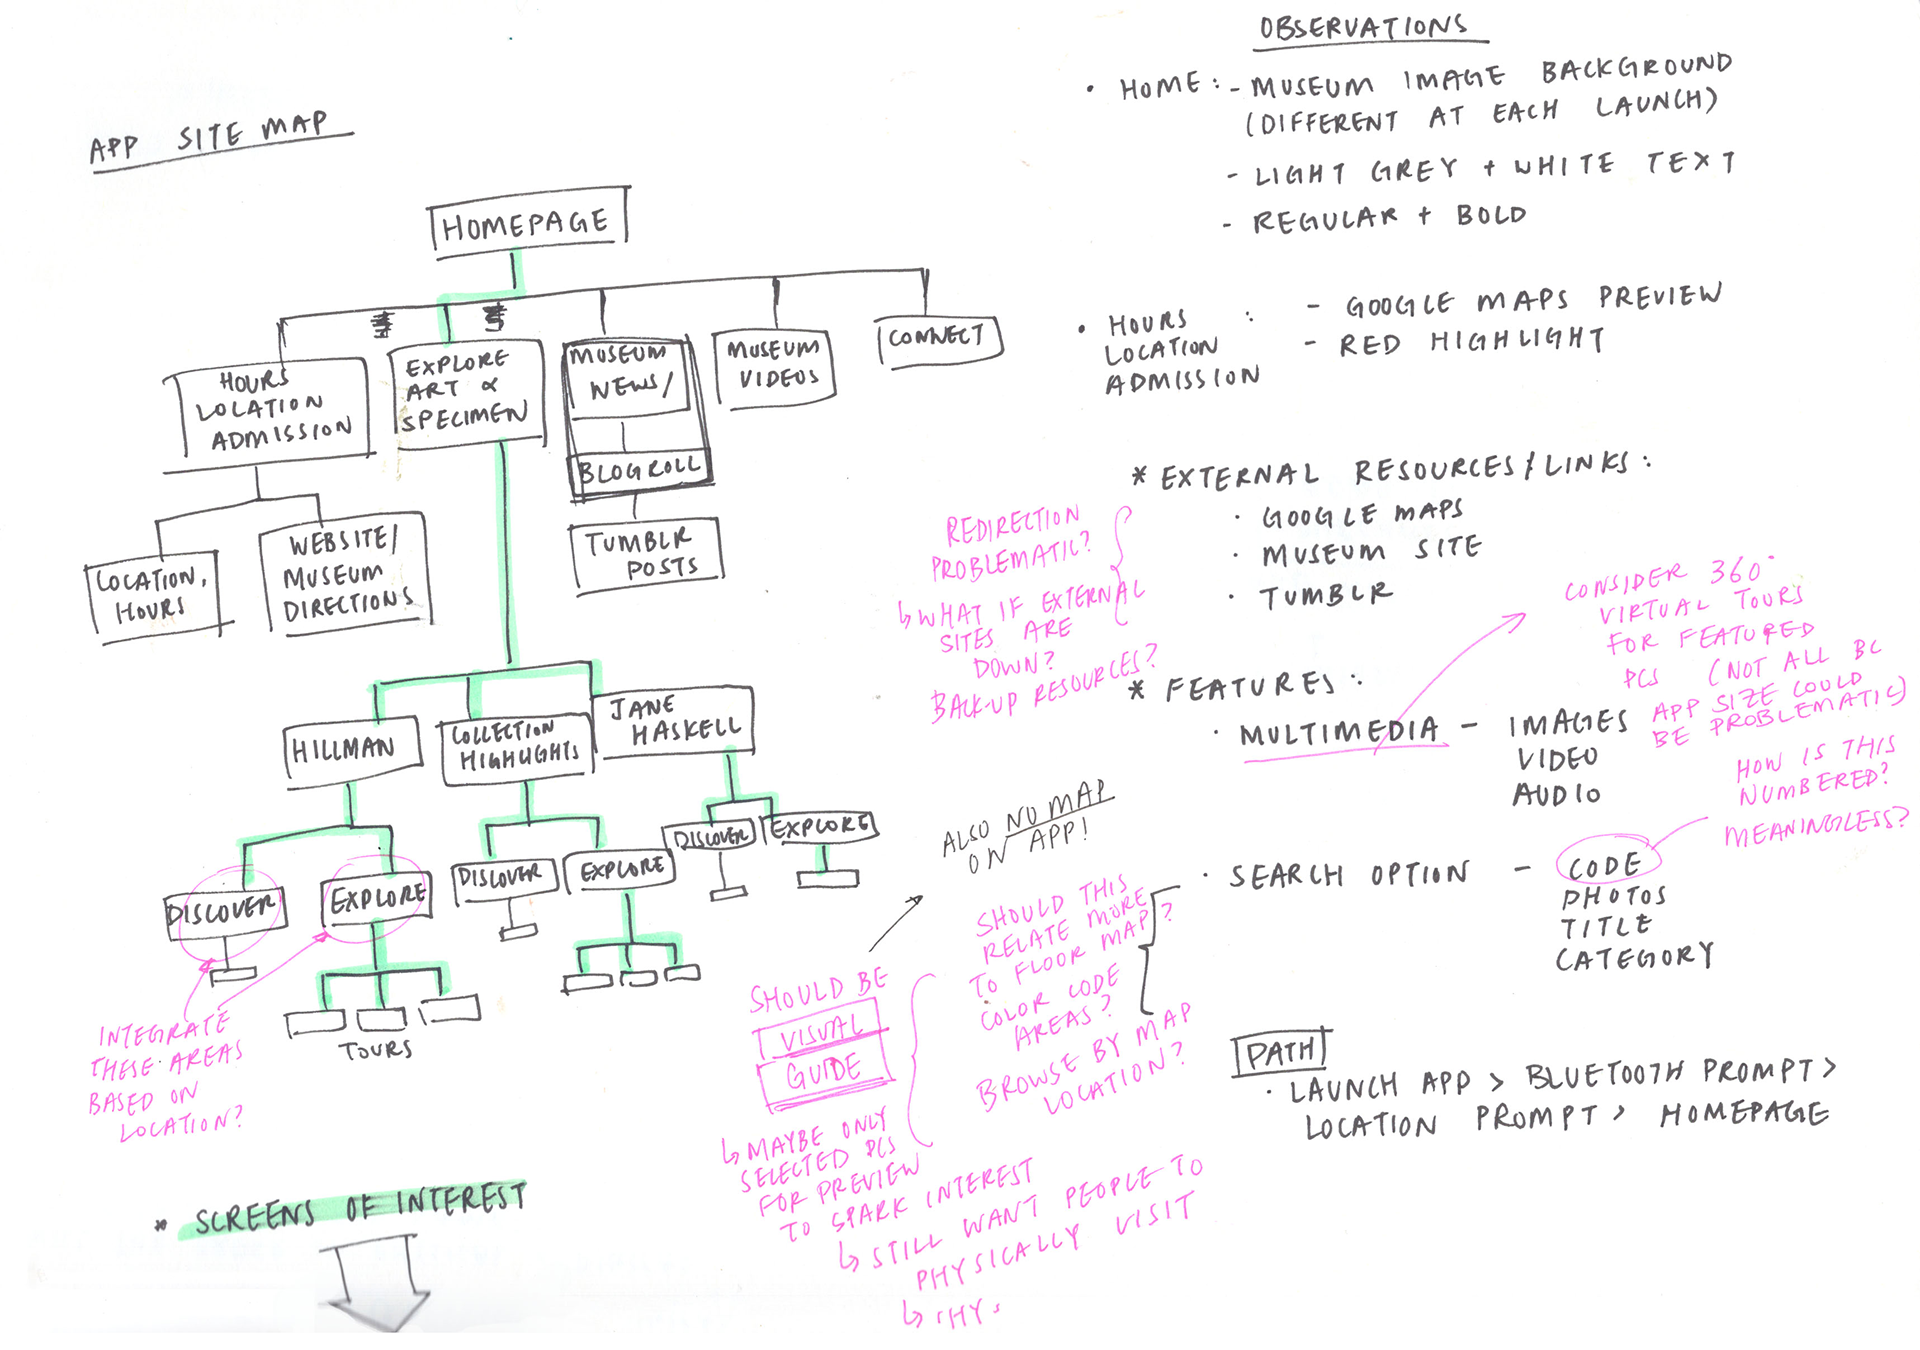 APP SITE MAP
HOMEPAGE
HOURS
LOCATION
ADMISSION
EXPLORE
ART &
SPECIMEN
MUSEUM
NEWS/
BLOGROLL
MUSEUM
VIDEOS
CONNECT
LOCATION,
HOURS
WEBSITE/
MUSEUM
DIRECTIONS
TUMBLR
POSTS
HILLMAN
COLLECTION
HIGHLIGHTS
JANE
HASKELL
DISCOVER
EXPLORE
DISCOVER
EXPLORE
DISCOVER
EXPLORE
TOURS
INTEGRATE
THESE AREAS
BASED ON
LOCATION?
* SCREENS OF INTEREST
ALSO NO MAP
ON APP!
SHOULD BE
VISUAL
GUIDE
↳ MAYBE ONLY
SELECTED PCS
FOR PREVIEW
TO SPARK INTEREST
↳ STILL WANT PEOPLE TO
PHYSICALLY VISIT
SHOULD THIS
RELATE MORE
TO FLOOR MAP?
COLOR CODE
AREAS?
BROWSE BY MAP
LOCATION?
OBSERVATIONS
• HOME: - MUSEUM IMAGE BACKGROUND
(DIFFERENT AT EACH LAUNCH)
- LIGHT GREY + WHITE TEXT
- REGULAR + BOLD
• HOURS : - GOOGLE MAPS PREVIEW
LOCATION - RED HIGHLIGHT
ADMISSION
* EXTERNAL RESOURCES/LINKS:
• GOOGLE MAPS
• MUSEUM SITE
• TUMBLR
REDIRECTION
PROBLEMATIC?
↳ WHAT IF EXTERNAL
SITES ARE
DOWN?
BACK-UP RESOURCES?
* FEATURES:
• MULTIMEDIA - IMAGES
VIDEO
AUDIO
CONSIDER 360°
VIRTUAL TOURS
FOR FEATURED
PCS (NOT ALL BC
APP SIZE COULD
BE PROBLEMATIC)
HOW IS THIS
NUMBERED?
MEANINGLESS?
• SEARCH OPTION - CODE
PHOTOS
TITLE
CATEGORY
PATH
• LAUNCH APP > BLUETOOTH PROMPT >
LOCATION PROMPT > HOMEPAGE